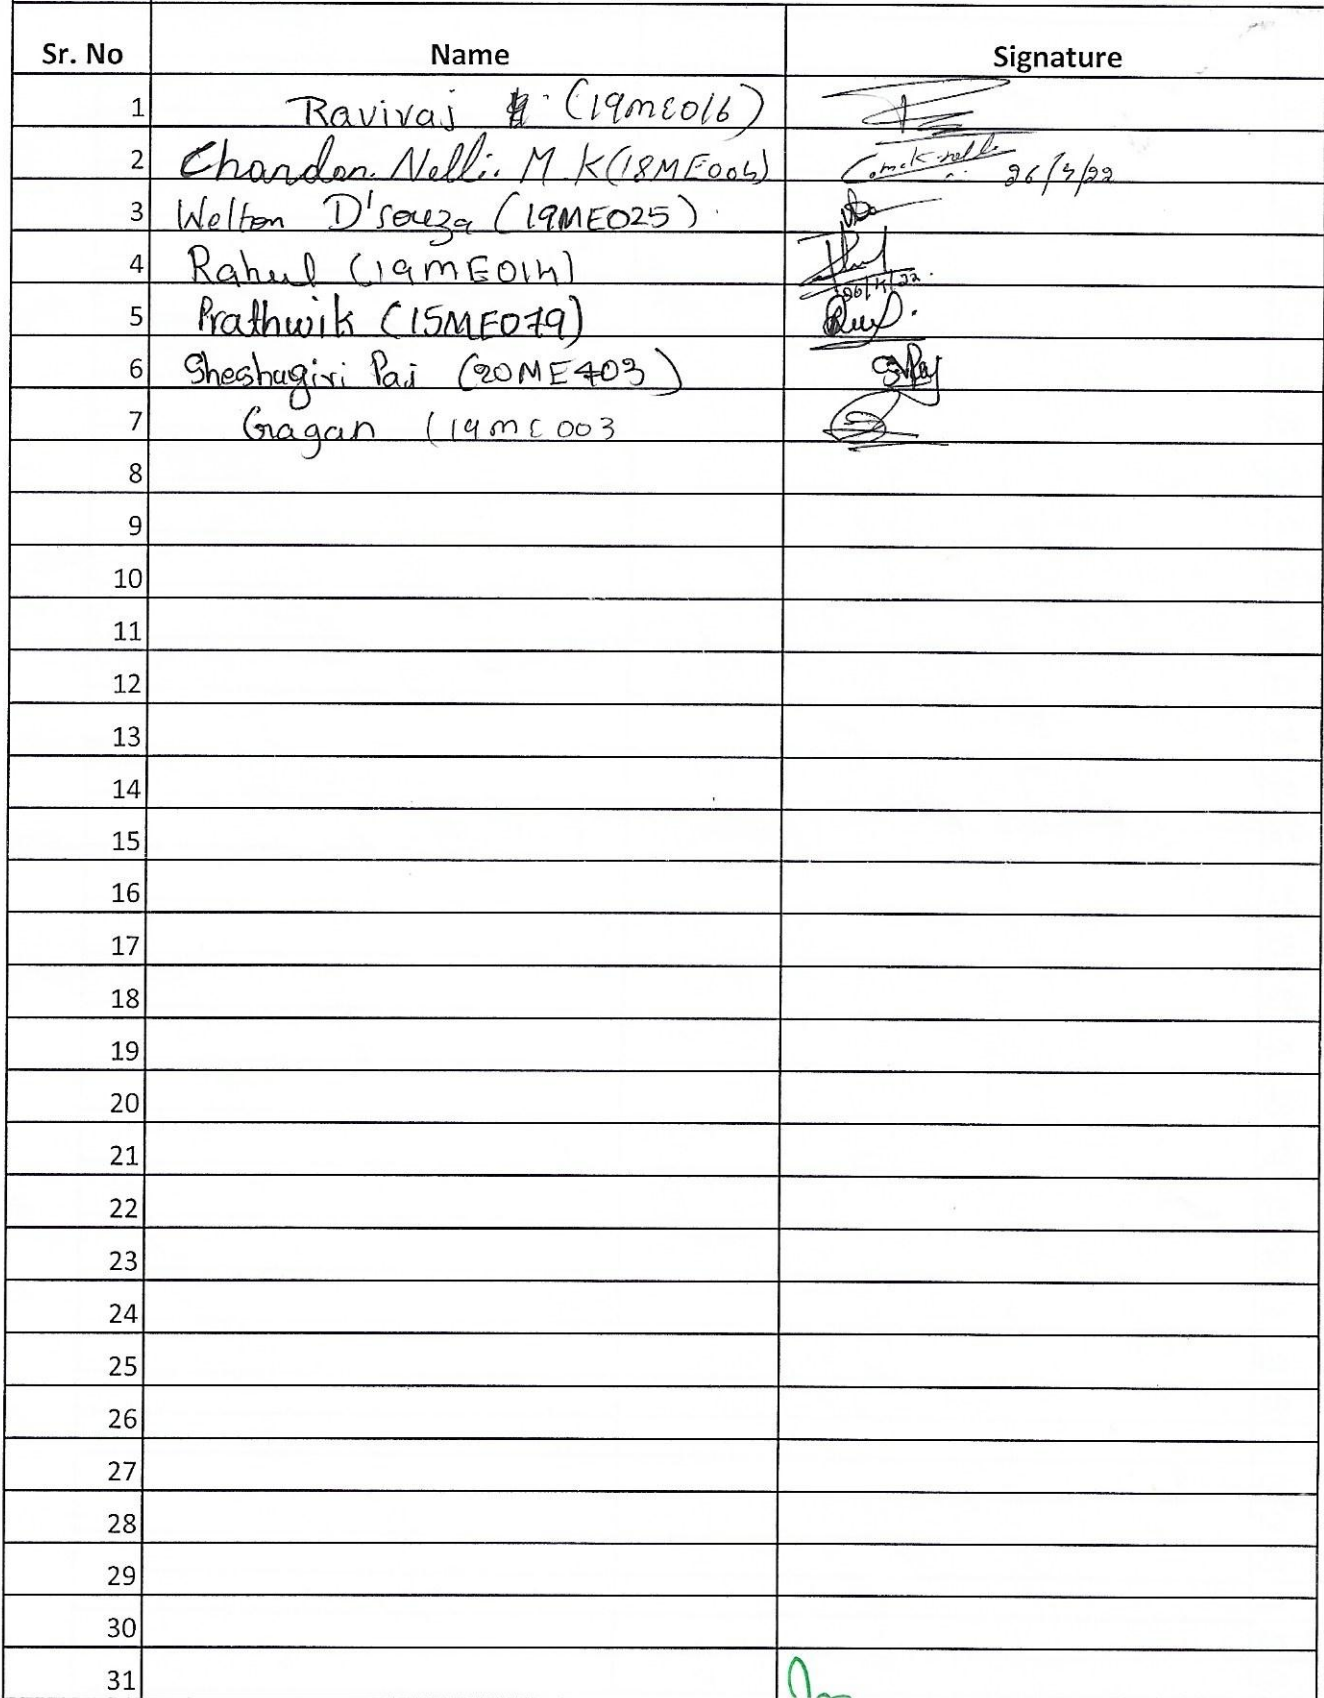 Sr. No Name Signature
1 Ravivaj (19ME016)
2 Chandan. Nelli. M K (18ME004) 26/4/22
3 Welton D'souza (19ME025)
4 Rahul (19mE014) 26/4/22.
5 Prathwik (15ME079)
6 Sheshagiri Pai (20ME403) S Pai
7 Gagan (19mE003
8
9
10
11
12
13
14
15
16
17
18
19
20
21
22
23
24
25
26
27
28
29
30
31